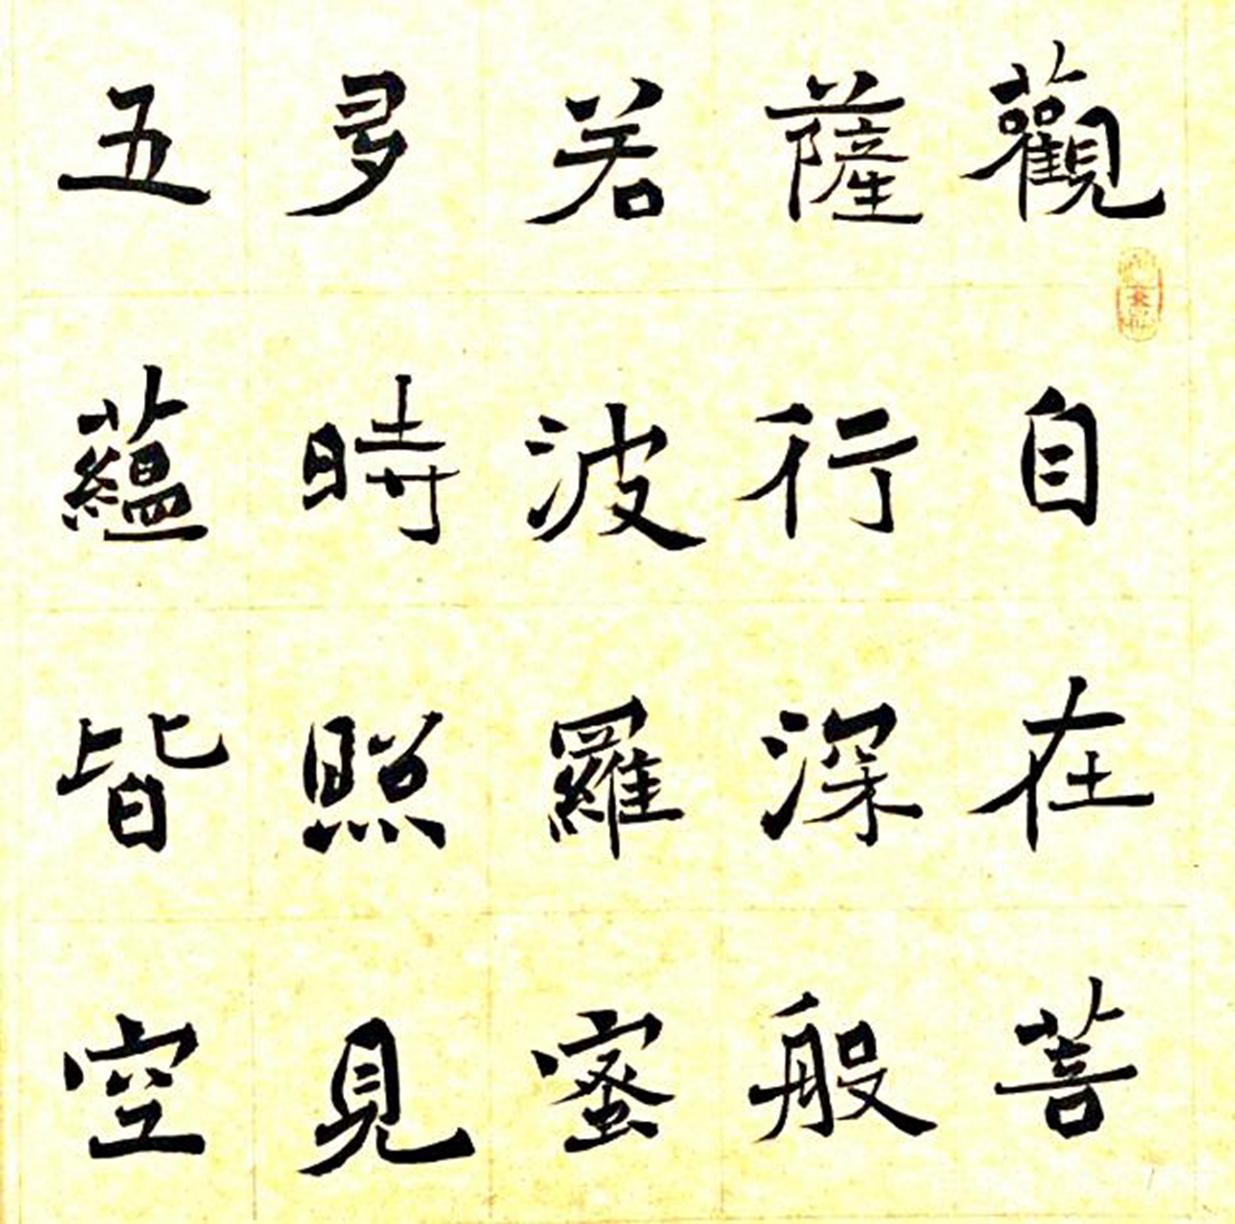 觀自在菩
薩行深般
若波羅蜜
多時照見
五蘊皆空